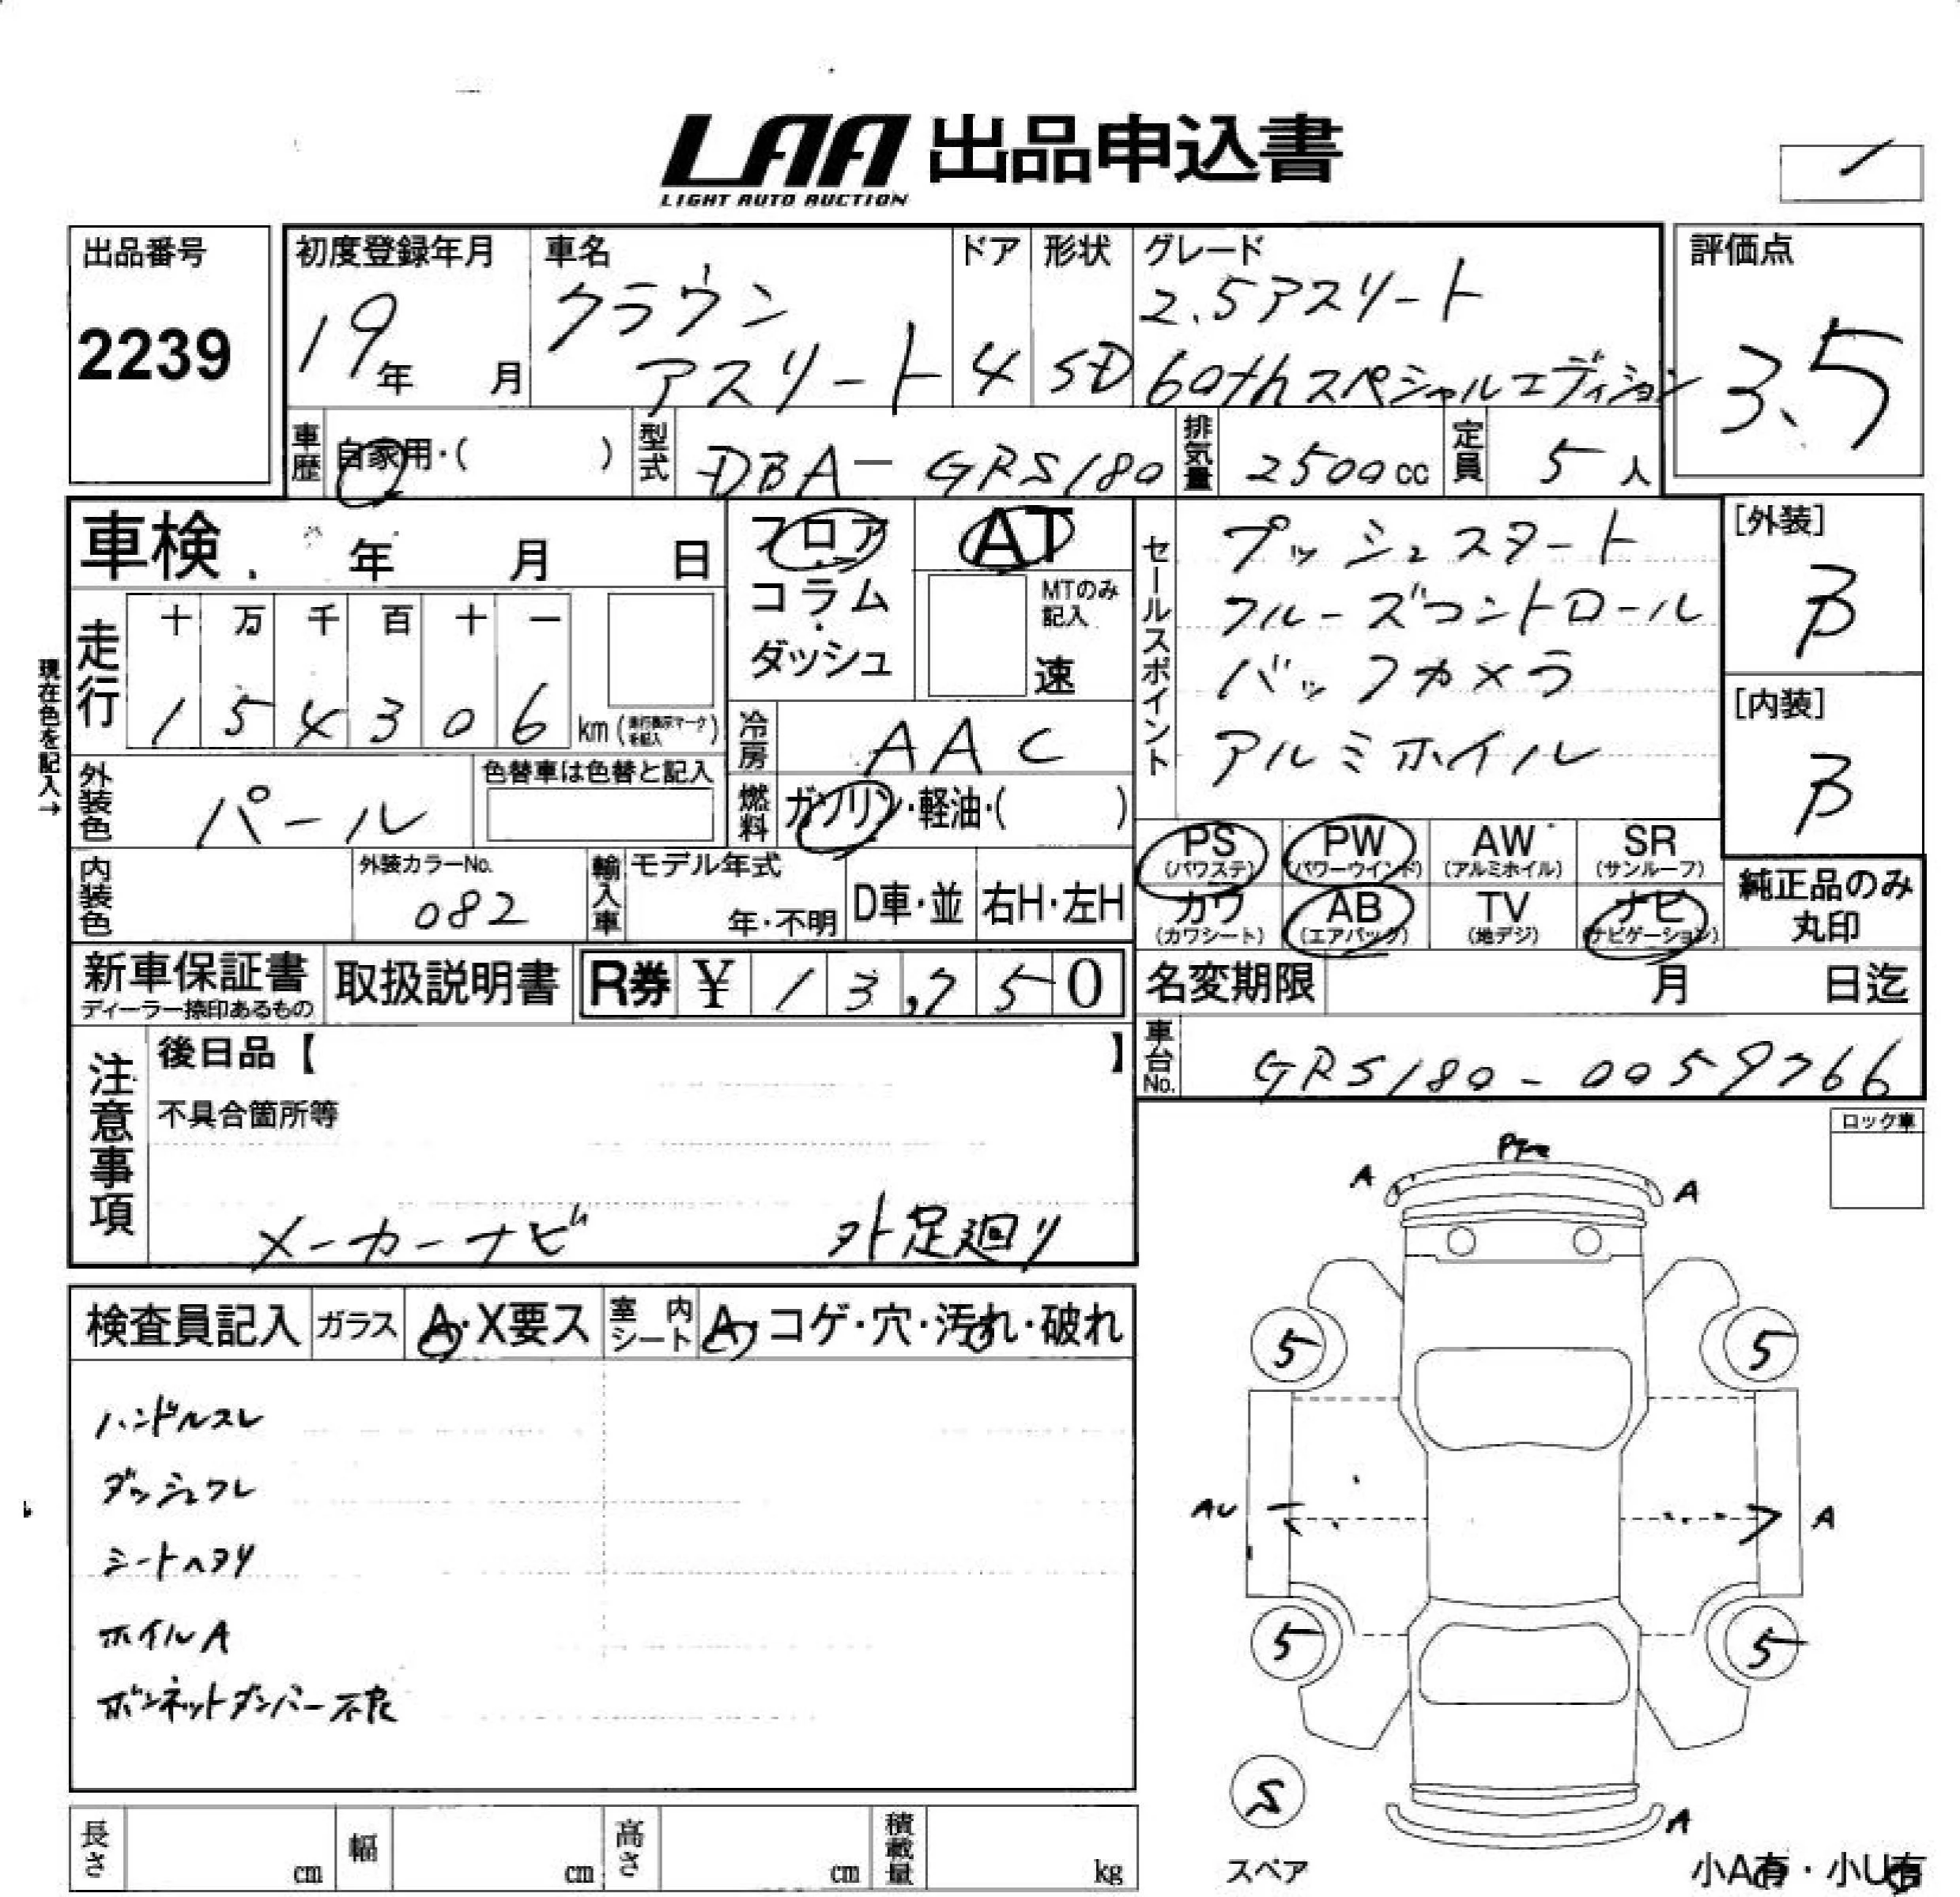 LAA 出品申込書
LIGHT AUTO AUCTION
出品番号
2239
初度登録年月
19年 月
車名
クラウン
アスリート
ドア
4
形状
SD
グレード
2.5アスリート
60thスペシャルエディション
評価点
3.5
車歴 自家用・( )
型式 DBA-GRS180
排気量 2500cc
定員 5人
車検 年 月 日
フロア
コラム
ダッシュ
AT
MTのみ記入
速
現在色を記入→
走行
十 万 千 百 十 一
1 5 4 3 0 6 km (走行表示マークを記入)
冷房 AAC
外装色 パール
色替車は色替と記入
燃料 ガソリン・軽油・( )
内装色
外装カラーNo.
082
輸入車
モデル年式
年・不明
D車・並
右H・左H
セールスポイント
プッシュスタート
クルーズコントロール
バックカメラ
アルミホイル
[外装]
B
[内装]
B
PS (パワステ)
PW (パワーウインド)
AW (アルミホイル)
SR (サンルーフ)
カワ (カワシート)
AB (エアバック)
TV (地デジ)
ナビ (ナビゲーション)
純正品のみ
丸印
新車保証書
ディーラー捺印あるもの
取扱説明書
R券 ¥ 13,750
名変期限 月 日迄
車台No. GRS180-0059766
注意事項
後日品【 】
不具合箇所等
メーカーナビ 外足廻り
ロック車
検査員記入
ガラス A・X要ス
室内シート A・コゲ・穴・汚れ・破れ
ハンドルスレ
ダッシュワレ
シートヘタリ
ホイルA
ボンネットダンパー不良
A
A
5
5
AU
A
5
5
S
スペア
A
小A有・小U有
長さ cm
幅 cm
高さ cm
積載量 kg